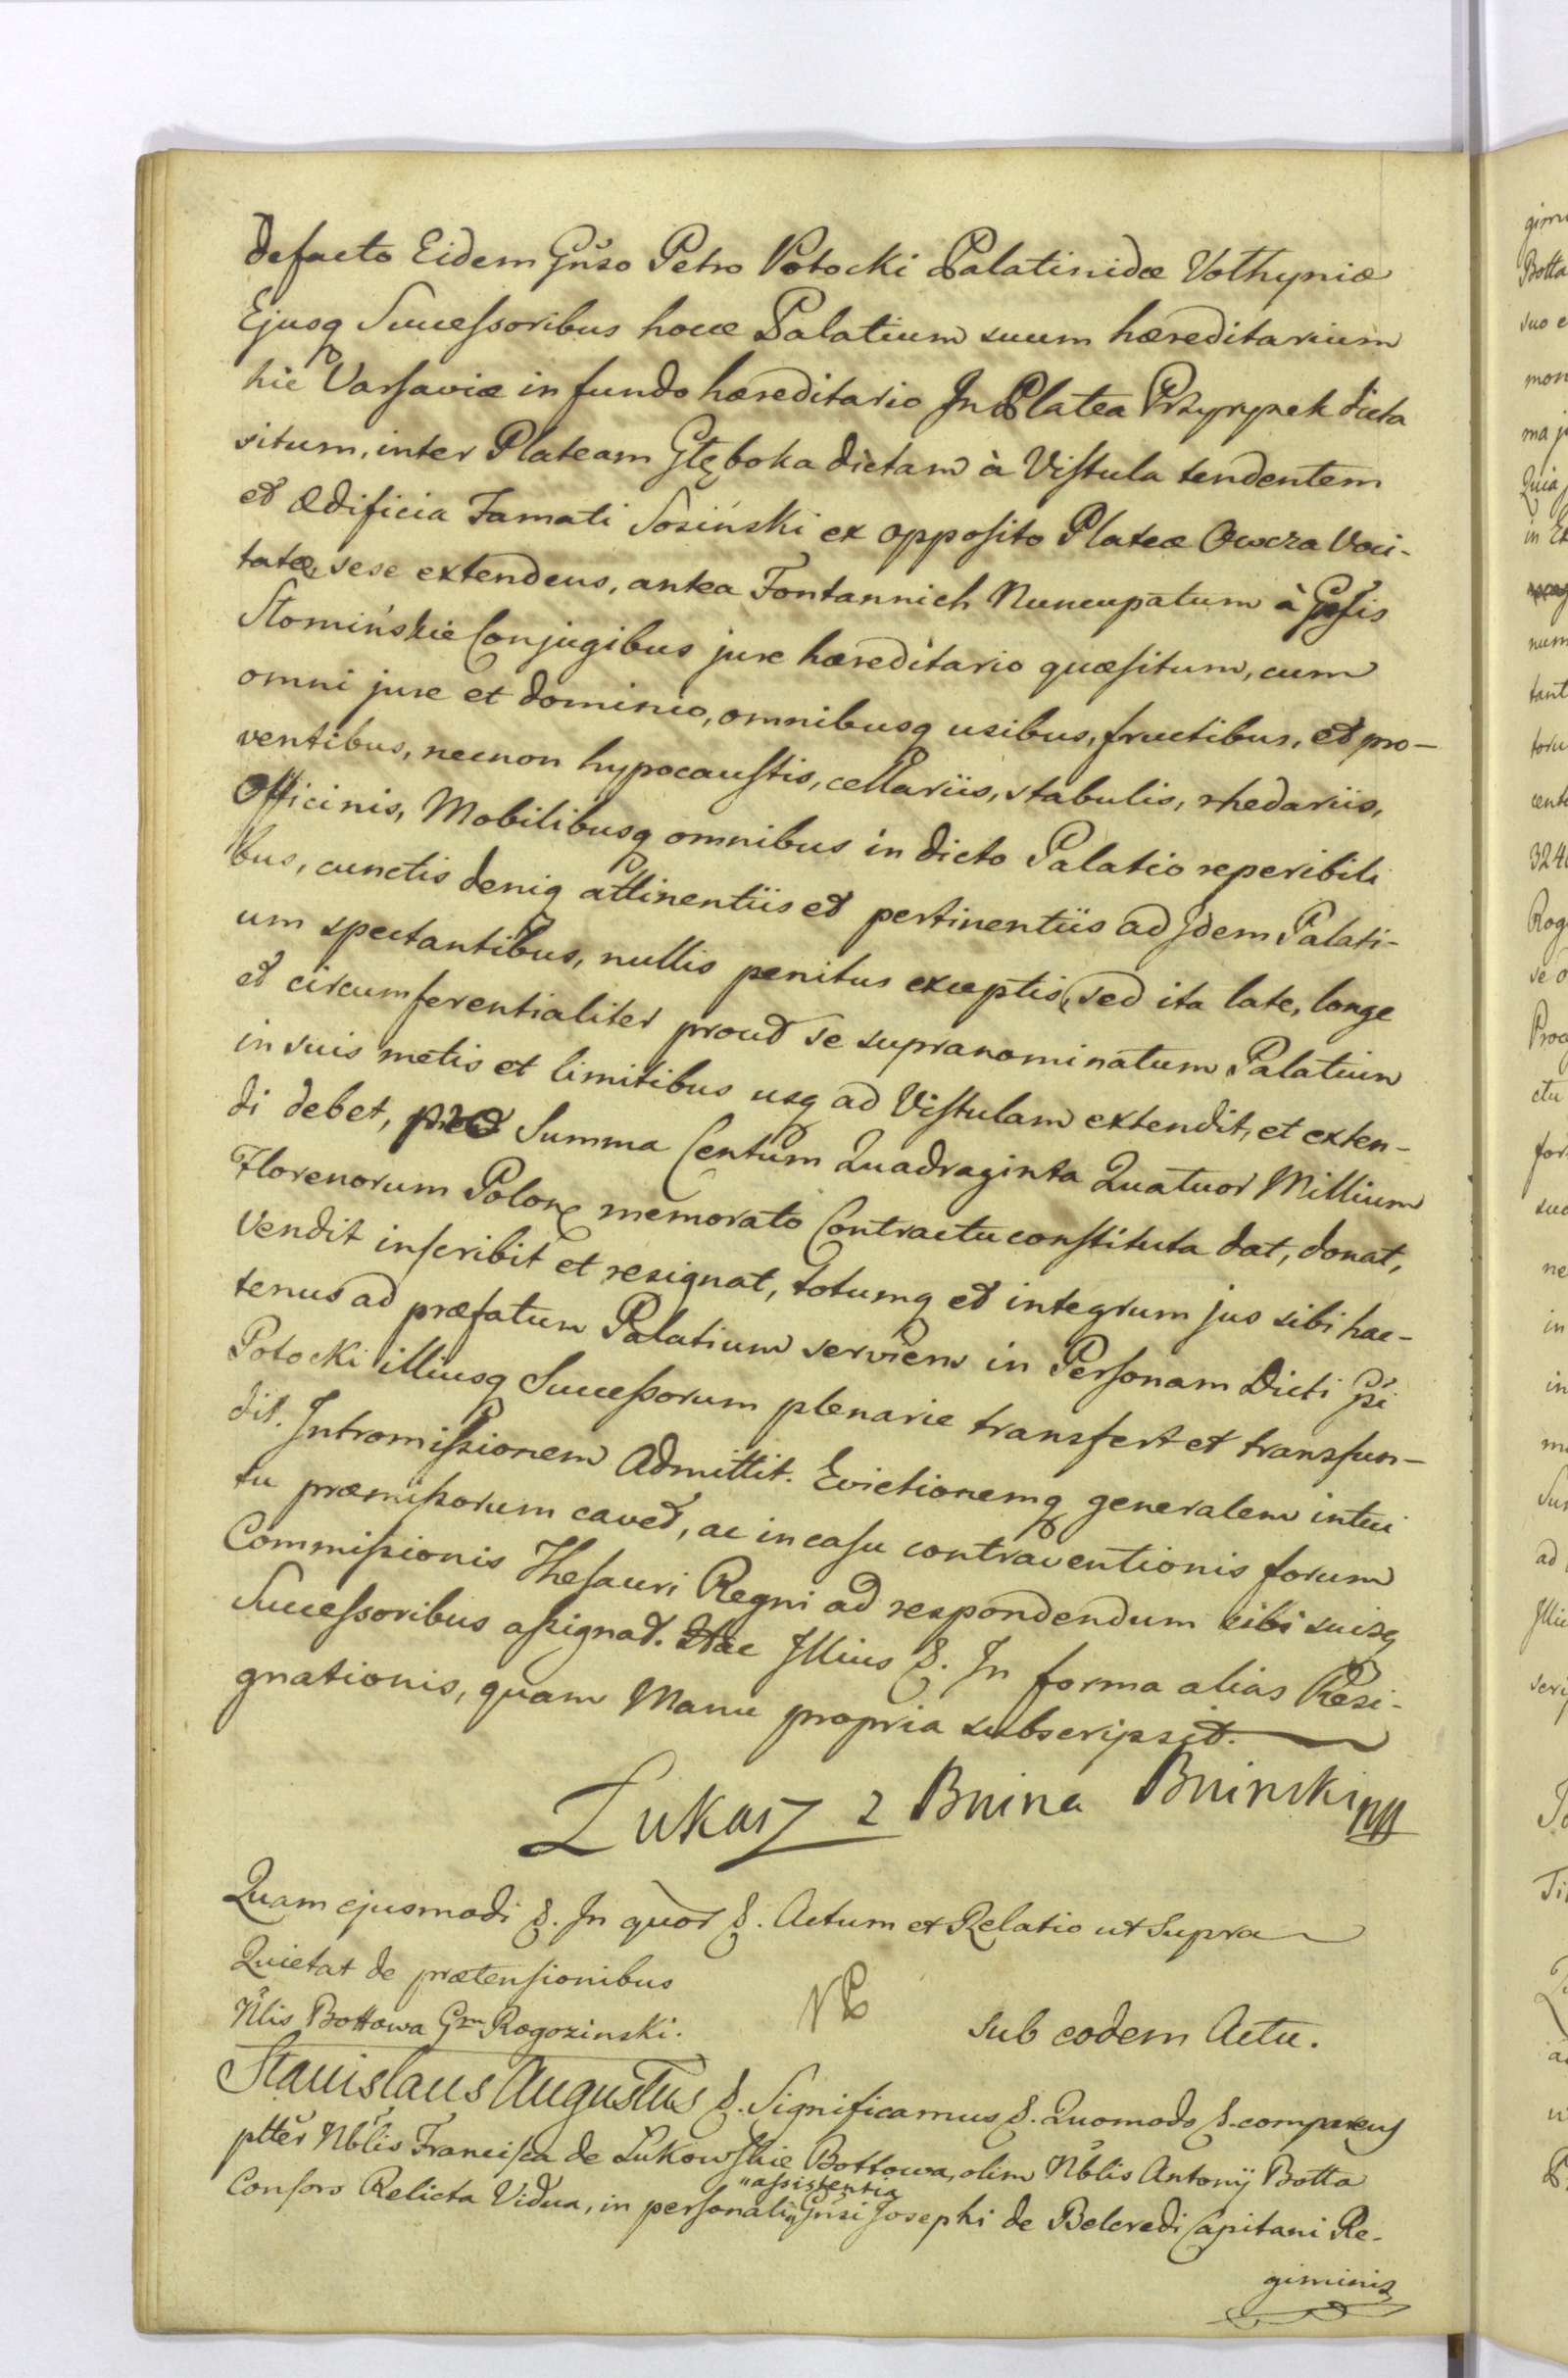 defacto Eidem Gñso Petro Potocki Palatinidæ Volhyniæ
Ejusq Successoribus hocce Palatium suum hæreditarium
hic Varsaviæ in fundo hæreditario In Platea Przyrynek dicta
situm, inter Plateam Głęboka dictam à Vistula tendentem
et Ædificia Famati Sosiński ex opposito Plateæ Owcza Voci-
tatæ, sese extendens, antea Fontannich Nuncupatum à Gñsis
Słomińskie Conjugibus jure hæreditario quæsitum, cum
omni jure et dominio, omnibusq usibus, fructibus, et pro-
ventibus, necnon hypocaustis, cellariis, stabulis, rhedariis,
Officinis, Mobilibusq omnibus in dicto Palatio reperibili
bus, cunctis deniq attinentiis et pertinentiis ad Idem Palati-
um spectantibus, nullis penitus exceptis, sed ita late, longe
et circumferentialiter prout se supranominatum Palatium
in suis metis et limitibus usq ad Vistulam extendit, et exten-
di debet, pro Summa Centum Quadraginta Quatuor Millium
Florenorum Polon memorato Contractu constituta dat, donat,
vendit inscribit et resignat, totumq et integrum jus sibi hac-
tenus ad præfatum Palatium serviens in Personam Dicti Gñsi
Potocki illiusq Successorum plenarie transfert et transfun-
dit. Intromissionem Admittit. Evictionemq generalem intui
tu præmissorum cavet, ac in casu contraventionis forum
Commissionis Thesauri Regni ad respondendum sibi suisq
Successoribus assignat. Hac Illius &. In forma alias Resi-
gnationis, quam Manu propria subscripsit.
Łukasz z Bnina Bninski mp
Quam ejusmodi &. In quor &. Actum et Relatio ut Supra
Quietat de prætensionibus
Nlis Bottowa Gm Rogozinski.
Sub eodem Actu.
Stanislaus Augustus &. Significamus &. Quomodo &. comparens
ptter Nblis Francisca de Łukowskie Bottowa, olim Nblis Antonij Botta
Consors Relicta Vidua, in personali "assistentia Gñsi Josephi de Belcredi Capitani Re-
giminis